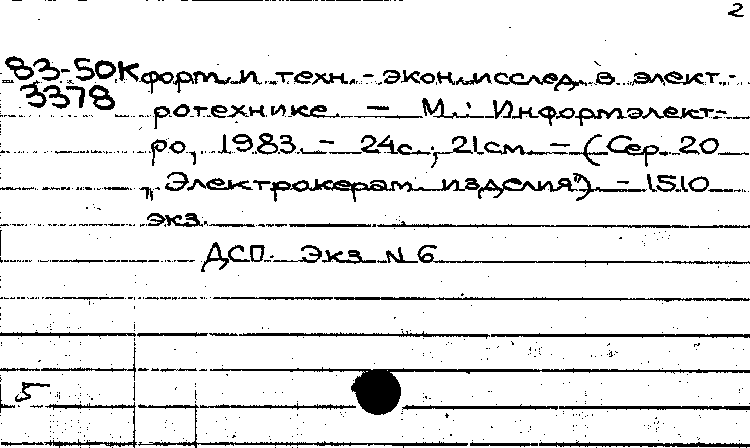 2
83-50К форм. и техн.-экон. исслед. в элект-
3378 ротехнике. — М.: Информэлект-
ро, 1983. - 24с.; 21см. - (Сер. 20
„Электрокерам. изделия"). - 1510
экз.
ДСП. Экз N 6
5